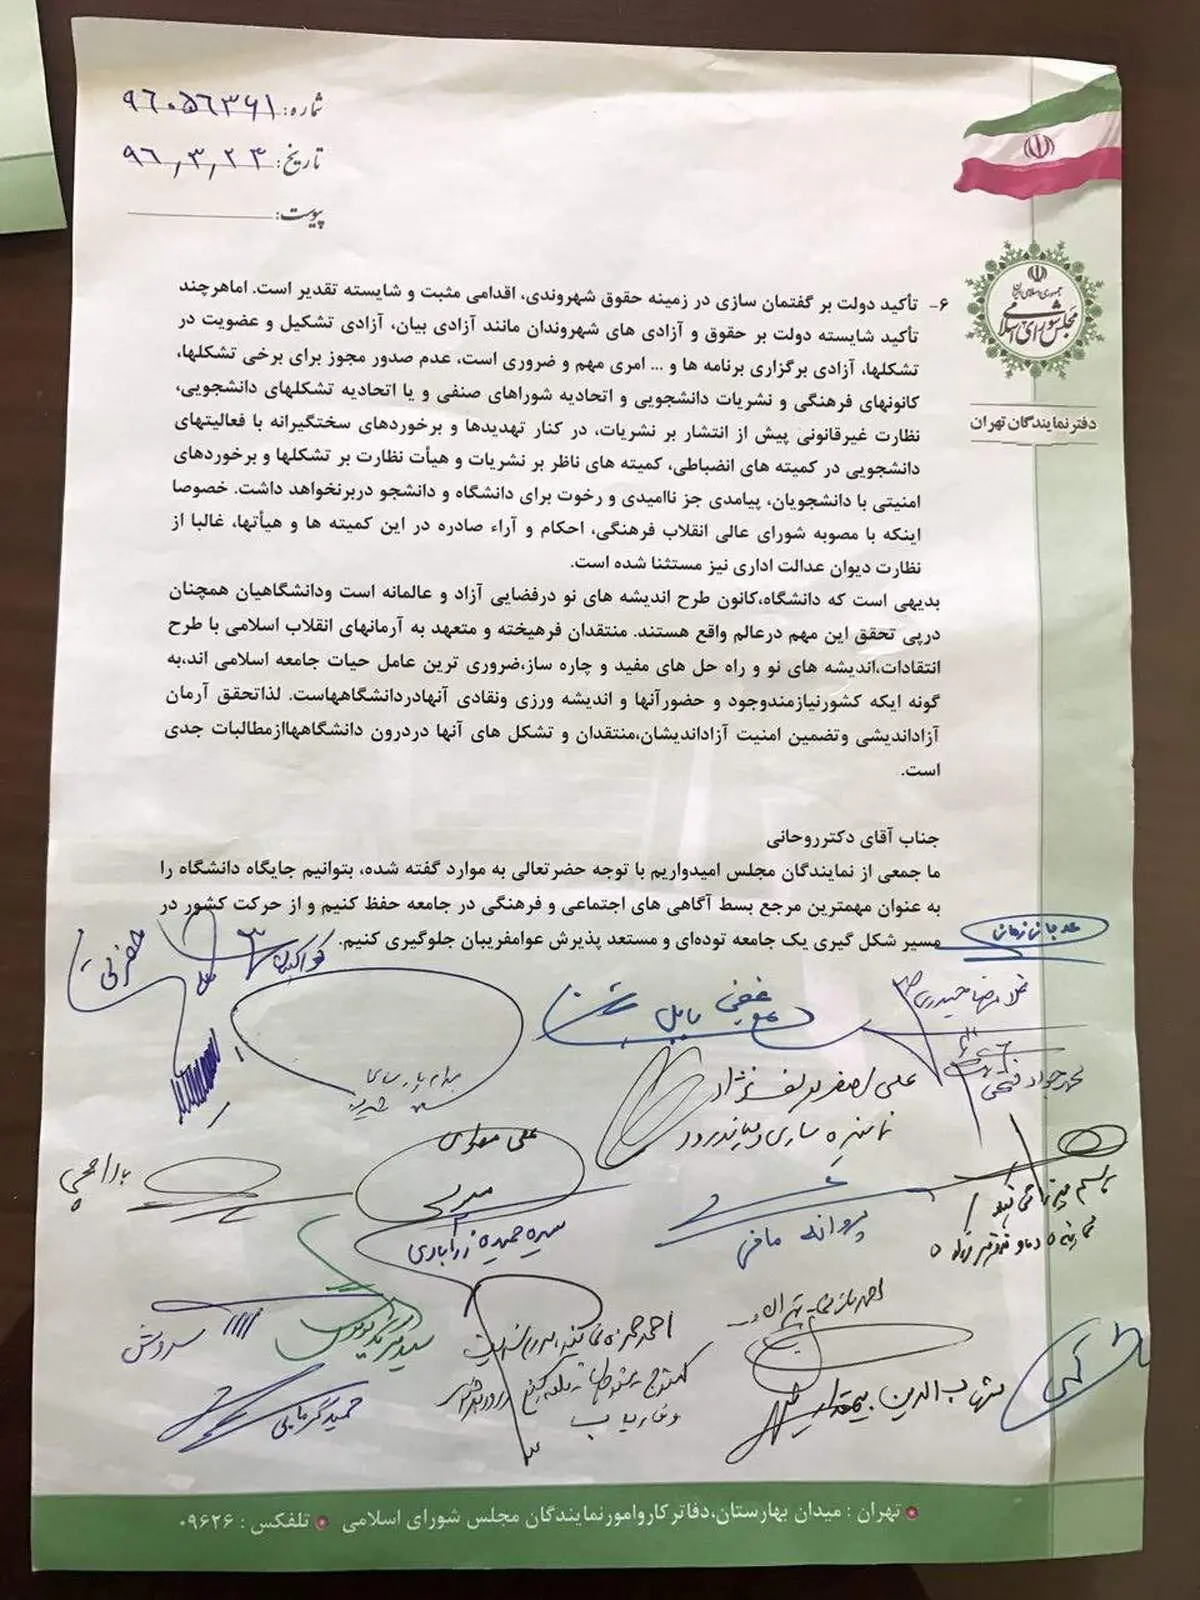 شماره: ۹۶۰۵۶۳۶۱
تاریخ: ۹۶,۳,۲۴
پیوست:
جمهوری اسلامی ایران
مجلس شورای اسلامی
دفتر نمایندگان تهران
۶- تأکید دولت بر گفتمان سازی در زمینه حقوق شهروندی، اقدامی مثبت و شایسته تقدیر است. اماهرچند
تأکید شایسته دولت بر حقوق و آزادی های شهروندان مانند آزادی بیان، آزادی تشکیل و عضویت در
تشکلها، آزادی برگزاری برنامه ها و ... امری مهم و ضروری است، عدم صدور مجوز برای برخی تشکلها،
کانونهای فرهنگی و نشریات دانشجویی و اتحادیه شوراهای صنفی و یا اتحادیه تشکلهای دانشجویی،
نظارت غیرقانونی پیش از انتشار بر نشریات، در کنار تهدیدها و برخوردهای سختگیرانه با فعالیتهای
دانشجویی در کمیته های انضباطی، کمیته های ناظر بر نشریات و هیأت نظارت بر تشکلها و برخوردهای
امنیتی با دانشجویان، پیامدی جز ناامیدی و رخوت برای دانشگاه و دانشجو دربرنخواهد داشت. خصوصا
اینکه با مصوبه شورای عالی انقلاب فرهنگی، احکام و آراء صادره در این کمیته ها و هیأتها، غالبا از
نظارت دیوان عدالت اداری نیز مستثنا شده است.
بدیهی است که دانشگاه،کانون طرح اندیشه های نو درفضایی آزاد و عالمانه است ودانشگاهیان همچنان
درپی تحقق این مهم درعالم واقع هستند. منتقدان فرهیخته و متعهد به آرمانهای انقلاب اسلامی با طرح
انتقادات،اندیشه های نو و راه حل های مفید و چاره ساز،ضروری ترین عامل حیات جامعه اسلامی اند،به
گونه ایکه کشورنیازمندوجود و حضورآنها و اندیشه ورزی ونقادی آنهادردانشگاههاست. لذاتحقق آرمان
آزاداندیشی وتضمین امنیت آزاداندیشان،منتقدان و تشکل های آنها دردرون دانشگاههاازمطالبات جدی
است.
جناب آقای دکترروحانی
ما جمعی از نمایندگان مجلس امیدواریم با توجه حضرتعالی به موارد گفته شده، بتوانیم جایگاه دانشگاه را
به عنوان مهمترین مرجع بسط آگاهی های اجتماعی و فرهنگی در جامعه حفظ کنیم و از حرکت کشور در
مسیر شکل گیری یک جامعه توده‌ای و مستعد پذیرش عوامفریبان جلوگیری کنیم.
حضرتی
غلامرضا حیدری
محمدجواد فتحی
علی اصغر یوسف نژاد
نماینده ساری و میاندورود
پروانه مافی
سیده حمیده زرآبادی
سروش
حمید گرمابی
احمد حمزه نماینده مردم شریف
کهنوج
و فاریاب
شهاب الدین بیمقدار
تهران : میدان بهارستان،دفاتر کاروامورنمایندگان مجلس شورای اسلامی تلفکس : ۰۹۶۲۶